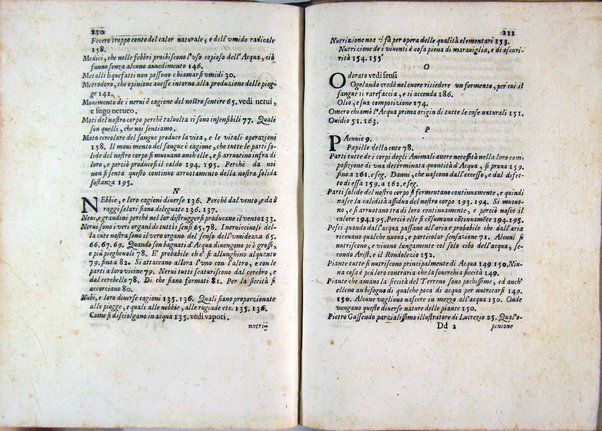 210
Fecero troppo conto del calor naturale, e dell'vmido radicale
158.
Medici, che nelle febri proibiscono l'vso copioso dell'Acqua, ciò
fanno senza alcuno auuedimento 146.
Metalli liquefatti non possono chiamarsi vmidi 30.
Metrodoro, che opinione auesse intorno alla produzione delle piog-
ge 142.
Mouimento de i nerui è cagione del nostro sentire 65. vedi nerui,
e sugo nerueo.
Moti del nostro corpo perchè taluolta ci sono insensibili 77. Quali
son quelli, che noi sentiamo.
Moto circolare del sangue produce la vita, e le vitali operazioni
158. Il mouimento del sangue è cagione, che tutte le parti soli-
de del nostro corpo si muouano anch'elle, e si arruotino infra di
loro, e perciò produce si il caldo 194. 195. Perchè da noi
non si senta questo continuo arruotamento della nostra solida
sustanza 195.
N
NEbbie, e loro cagioni diuerse 136. Perchè dal vento, e da i
raggi solari siano dileguate 136. 137.
Neui, e grandini perchè nel lor distruggersi producano il vento 133.
Nerui sono i veri organi de tutti i sensi 65. 78. I neruiccinoli del-
la cute nostra sono il vero organo del senso dell'vmidezza 65.
66. 67. 69. Quando son bagnati d'Acqua diuengono più grossi,
e più pieghenoli 78. E' probabile che s'allunghino alquanto
79. sino a 82. Si attaccano altra l'vno con l'altro, e con le
parti a loro vicine 79. Nerui tutti scaturiscono dal cerebro, e
dal cerebello 78. Di che siano formati 81. Per la siccità si
accorciano 80.
Nubi, e loro diuerse cagioni 135. 136. Quali siano proporzionate
alle piogge, e quali alle nebbie, alle rugiade etc. 135. 136.
Come si disciolgano in acqua 135. vedi vapori.
nutri-
211
Nutrizione non si fà per opera delle qualità elementari 153.
Nutrizione de i viuenti è cosa piena di marauiglia, e di oscuri-
tà 154. 155
O
Odorato vedi sensi
Ogelando credè nel cuore risiedere vn fermento, per cui il
sangue si rarefaccia, e si accenda 186.
Olio, e sua composizione 174.
Omero chiamò l'Acqua prima origin di tutte le cose naturali 151.
Ouidio 51. 163.
P
PAcuuio 9.
Papille della cute 78.
Parti tutte de i corpi degli Animali auere necessità nella loro com-
posizione di vna determinata quantità d'Acqua, si proua 159.
sino a 161. e seg. Danni, che nascono dall'eccesso, e dal difet-
to di essa 159. a 162. e seg.
Parti solide del nostro corpo si fermentano continuamente, e quindi
nasce la validità assidua del nostro corpo 193. 194. Si muouo-
no, e si arruotano tra di loro continuamente, e perciò nasce il
calore 194. 195. Perchè elle si consumino continuamente 194. 195.
Pesci quando dall'acqua passano all'aria è probabile che dall'aria
riceuano qualche nuoua, e particolar sensazione 71. Alcuni si
nutriscono, e viuono lungamente col solo cibo dell'acqua, se-
condo Arist. e il Rondolezio 152.
Piante tutte si nutriscono principalmente di Acqua 149. 150. Niu-
na cosa è più loro contraria che la souerchia siccità 149.
Piante che amano la siccità del Terreno sono pochissime, ed anch'
elleno an bisogno di qualche poca di acqua per nutricarsi 149.
150. Alcune vogliono nascere in mezzo all'acqua 150. Onde
vengano queste diuerse nature delle piante 150.
Pietro Gassendo parzialissimo illustratore di Lucrezio 25. Qual'o-
Dd 2 pinione